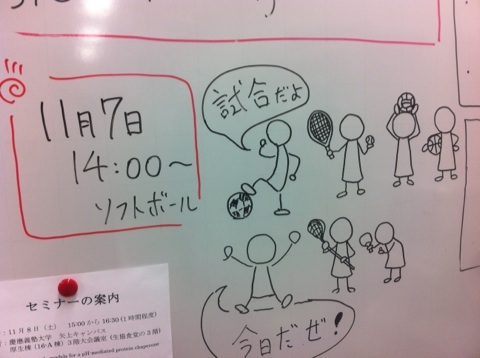 11月7日
14:00～
ソフトボール
試合だよ
今日だぜ!
セミナーの案内
11月8日（土） 15:00から16:30(1時間程度)
慶應義塾大学 矢上キャンパス
厚生棟（16A棟）3階大会議室（生協食堂の3階）